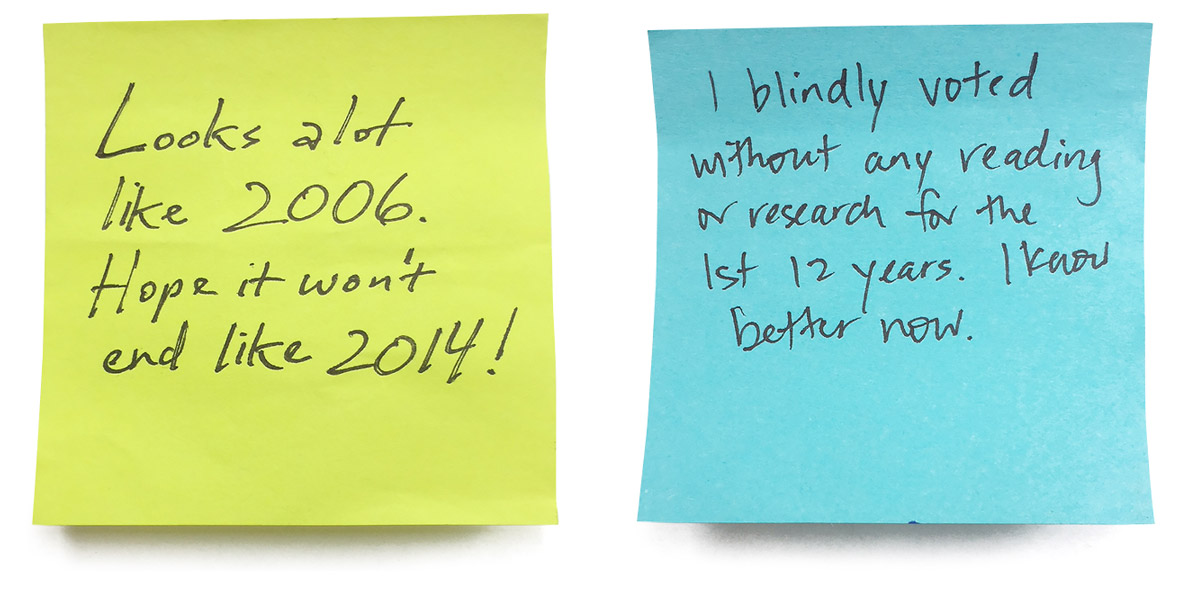 Looks alot
like 2006.
Hope it won't
end like 2014!
I blindly voted
without any reading
or research for the
1st 12 years. I know
better now.